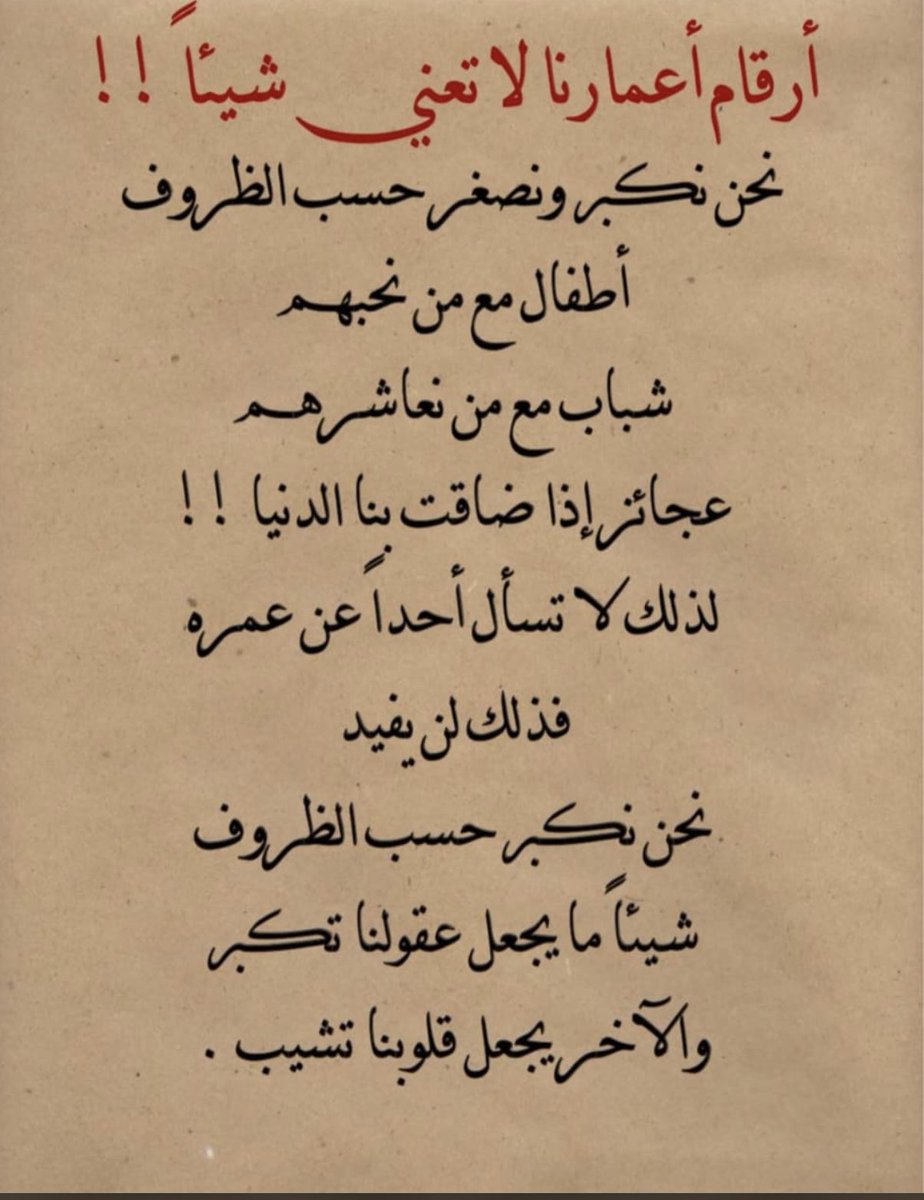 أرقام أعمارنا لا تعني شيئاً !!
نحن نكبر ونصغر حسب الظروف
أطفال مع من نحبهم
شباب مع من نعاشرهم
عجائز إذا ضاقت بنا الدنيا !!
لذلك لا تسأل أحداً عن عمره
فذلك لن يفيد
نحن نكبر حسب الظروف
شيئاً ما يجعل عقولنا تكبر
والآخر يجعل قلوبنا تشيب .